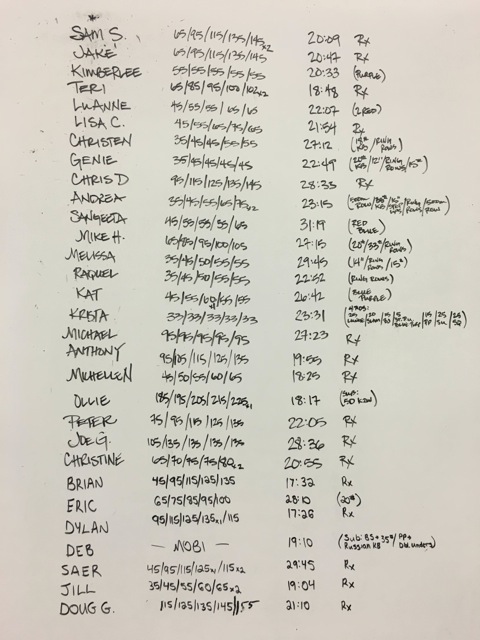 SAM S. 65/95/115/135/145x2 20:09 Rx
JAKE 65/95/115/135/145 20:47 Rx
KIMBERLEE 55/55/55/55/55 20:33 (PURPLE)
TERI 65/85/95/100/102x2 18:48 Rx
LUANNE 45/55/55/65/65 22:07 (2 RED)
LISA C. 45/55/65/75/65 21:54 Rx
CHRISTEN 35/45/45/55/55 27:12 (15# KB/RING ROWS)
GENIE 35/45/45/45/45 22:49 (20# KB/12"/RING ROWS/15#)
CHRIS D 95/115/125/135/145 28:35 Rx
ANDREA 35/45/55/65/75x2 23:15 (500m ROW/35# KB/15# /RING ROWS/500m ROW)
SANGEETA 45/55/55/55/65 31:19 (RED BLUE)
MIKE H. 65/85/95/100/105 27:15 (20"/35#/RING ROWS)
MELISSA 35/45/50/55/55 29:45 (14"/RING ROWS/15#)
RAQUEL 35/45/50/55/55 22:52 (RING ROWS)
KAT 45/55/60/55/55 26:42 (BLUE PURPLE)
KRISTA 33/33/33/33/33 23:31
MICHAEL 95/95/95/95/95 27:23 Rx
ANTHONY 95/105/115/125/135 19:55 Rx
MICHELLEN 45/50/55/60/65 18:25 Rx
OLLIE 185/195/205/215/225x1 18:17 (SUB: 50 KBW)
PETER 75/95/115/125/135 22:05 Rx
JOE G. 105/135/135/135/135 28:36 Rx
CHRISTINE 65/70/75/75/80x2 20:55 Rx
BRIAN 45/95/115/125/135 17:32 Rx
ERIC 65/75/85/95/100 28:10 (20#)
DYLAN 95/115/125/135x1/115 17:26 Rx
DEB — MOBI — 19:10 (Sub: BS+35#/PP+ Russian KB Dbl. unders)
SAER 45/95/115/125x1/115x2 29:45 Rx
JILL 35/45/55/60/65x2 19:04 Rx
DOUG G. 115/125/135/145/155 21:10 Rx